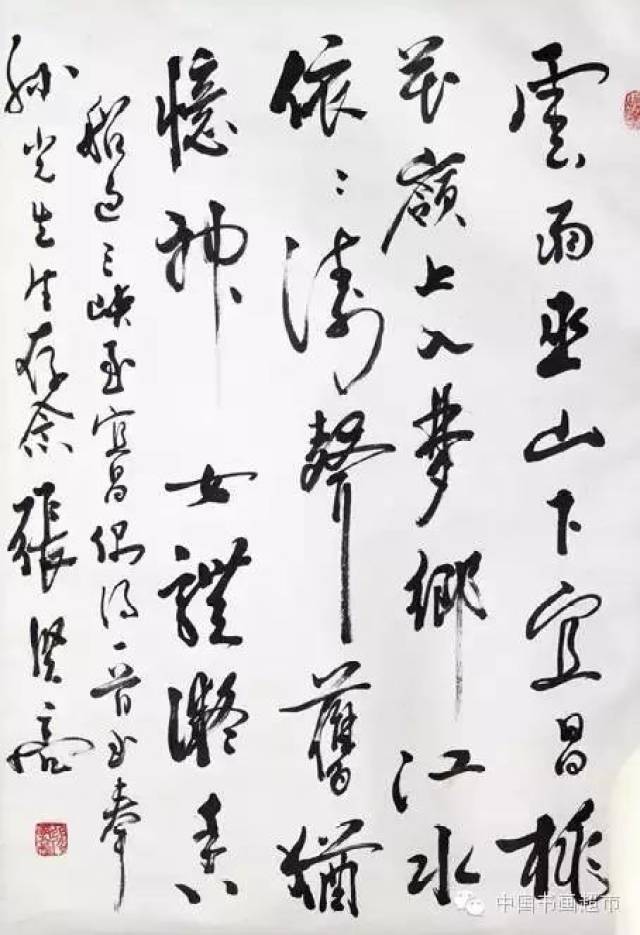 雲雨巫山下宜昌桃
花嶺上入夢鄉江水
依:濤聲舊猶
憶神女體凝香
船過三峽至宜昌偶得一首書奉
孙光生先生存念張賢亮
中国书画超市